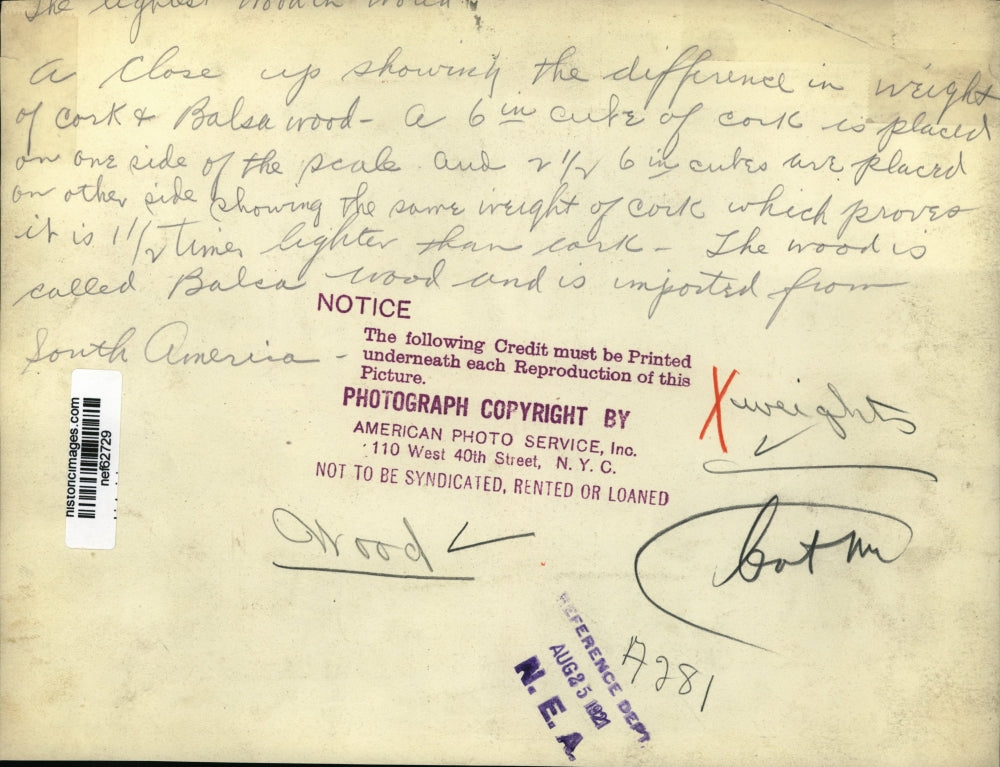 The lightest wood in world
A Close up showing the difference in weight
of cork & Balsa wood - A 6 in cube of cork is placed
on one side of the scale and 2 1/2 6 in cubes are placed
on other side showing the same weight of cork which proves
it is 1 1/2 Times lighter than cork - The wood is
called Balsa wood and is imported from
South America -
NOTICE
The following Credit must be Printed
underneath each Reproduction of this
Picture.
PHOTOGRAPH COPYRIGHT BY
AMERICAN PHOTO SERVICE, Inc.
110 West 40th Street, N. Y. C.
NOT TO BE SYNDICATED, RENTED OR LOANED
X weights
historicimages.com
nef62729
Wood
REFERENCE DEPT.
AUG 25 1921
N. E. A.
A281